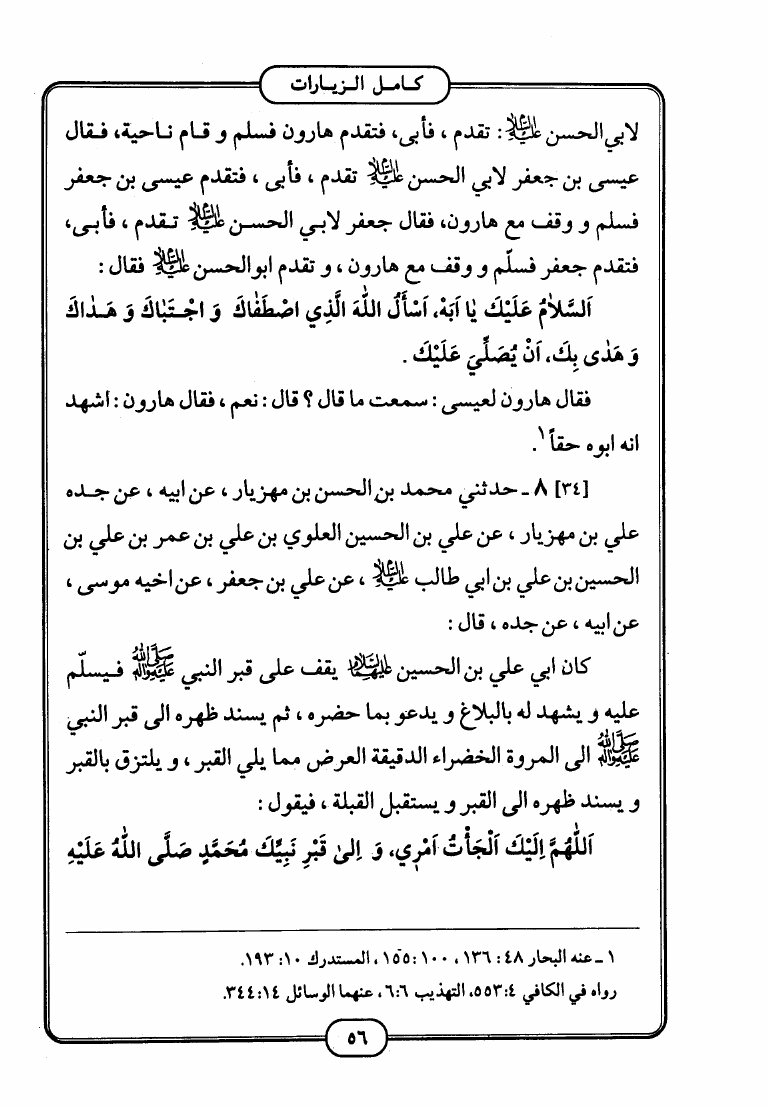 كامل الزيارات
لابي الحسن عليه السلام : تقدم ، فأبى، فتقدم هارون فسلم و قام ناحية، فقال
عيسى بن جعفر لابي الحسن عليه السلام تقدم ، فأبى ، فتقدم عيسى بن جعفر
فسلم و وقف مع هارون، فقال جعفر لابي الحسن عليه السلام تقدم ، فأبى،
فتقدم جعفر فسلّم و وقف مع هارون ، و تقدم ابوالحسن عليه السلام فقال :
اَلسَّلاٰمُ عَلَيْكَ يٰا اَبَهْ، اَسْأَلُ اللّٰهَ الَّذِي اصْطَفٰاكَ وَ اجْتَبٰاكَ وَ هَدٰاكَ
وَ هَدٰى بِكَ، اَنْ يُصَلِّيَ عَلَيْكَ .
فقال هارون لعيسى : سمعت ما قال ؟ قال : نعم ، فقال هارون : اشهد
انه ابوه حقاً١.
[٣٤] ٨ ـ حدثني محمد بن الحسن بن مهزيار ، عن ابيه ، عن جده
علي بن مهزيار ، عن علي بن الحسين العلوي بن علي بن عمر بن علي بن
الحسين بن علي بن ابي طالب عليه السلام ، عن علي بن جعفر ، عن اخيه موسى ،
عن ابيه ، عن جده ، قال :
كان ابي علي بن الحسين عليهما السلام يقف على قبر النبي صلى الله عليه وآله فيسلّم
عليه و يشهد له بالبلاغ و يدعو بما حضره ، ثم يسند ظهره الى قبر النبي
صلى الله عليه وآله الى المروة الخضراء الدقيقة العرض مما يلي القبر ، و يلتزق بالقبر
و يسند ظهره الى القبر و يستقبل القبلة ، فيقول :
اَللّٰهُمَّ اِلَيْكَ اَلْجَأْتُ اَمْرِي، وَ اِلىٰ قَبْرِ نَبِيِّكَ مُحَمَّدٍ صَلَّى اللّٰهُ عَلَيْهِ
١ ـ عنه البحار ٤٨ : ١٣٦ ، ١٠٠ : ١٥٥ ، المستدرك ١٠ : ١٩٣.
رواه في الكافي ٤ : ٥٥٣، التهذيب ٦ : ٦ ، عنهما الوسائل ١٤ : ٣٤٤.
٥٦